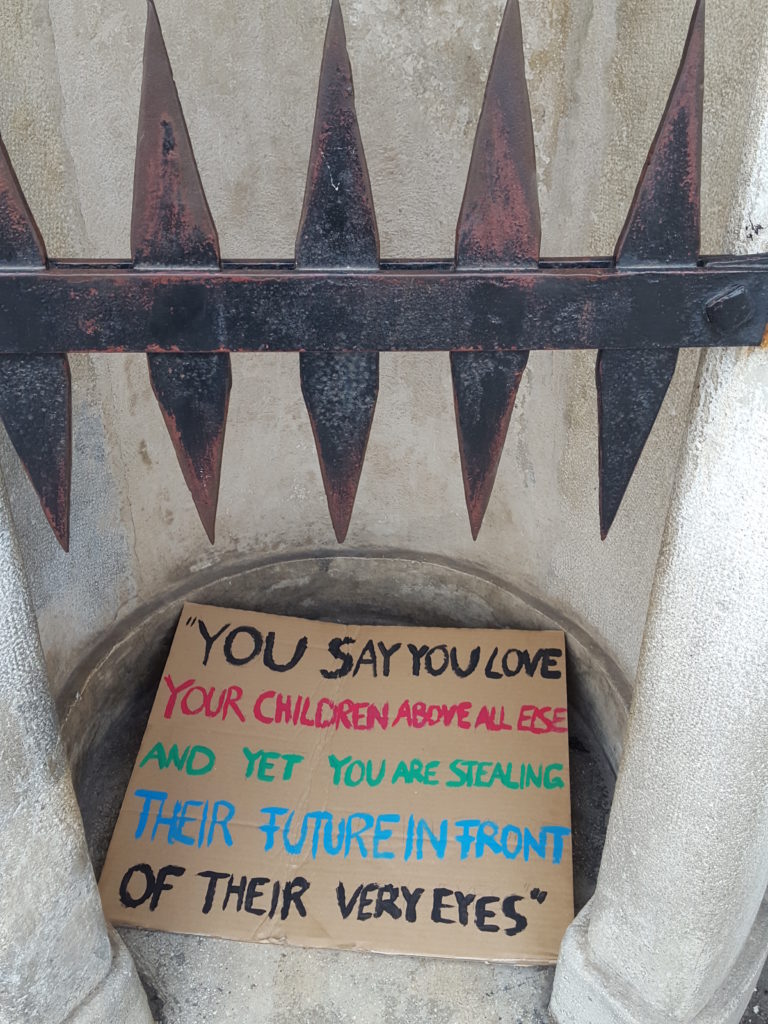 "YOU SAY YOU LOVE
YOUR CHILDREN ABOVE ALL ELSE
AND YET YOU ARE STEALING
THEIR FUTURE IN FRONT
OF THEIR VERY EYES"